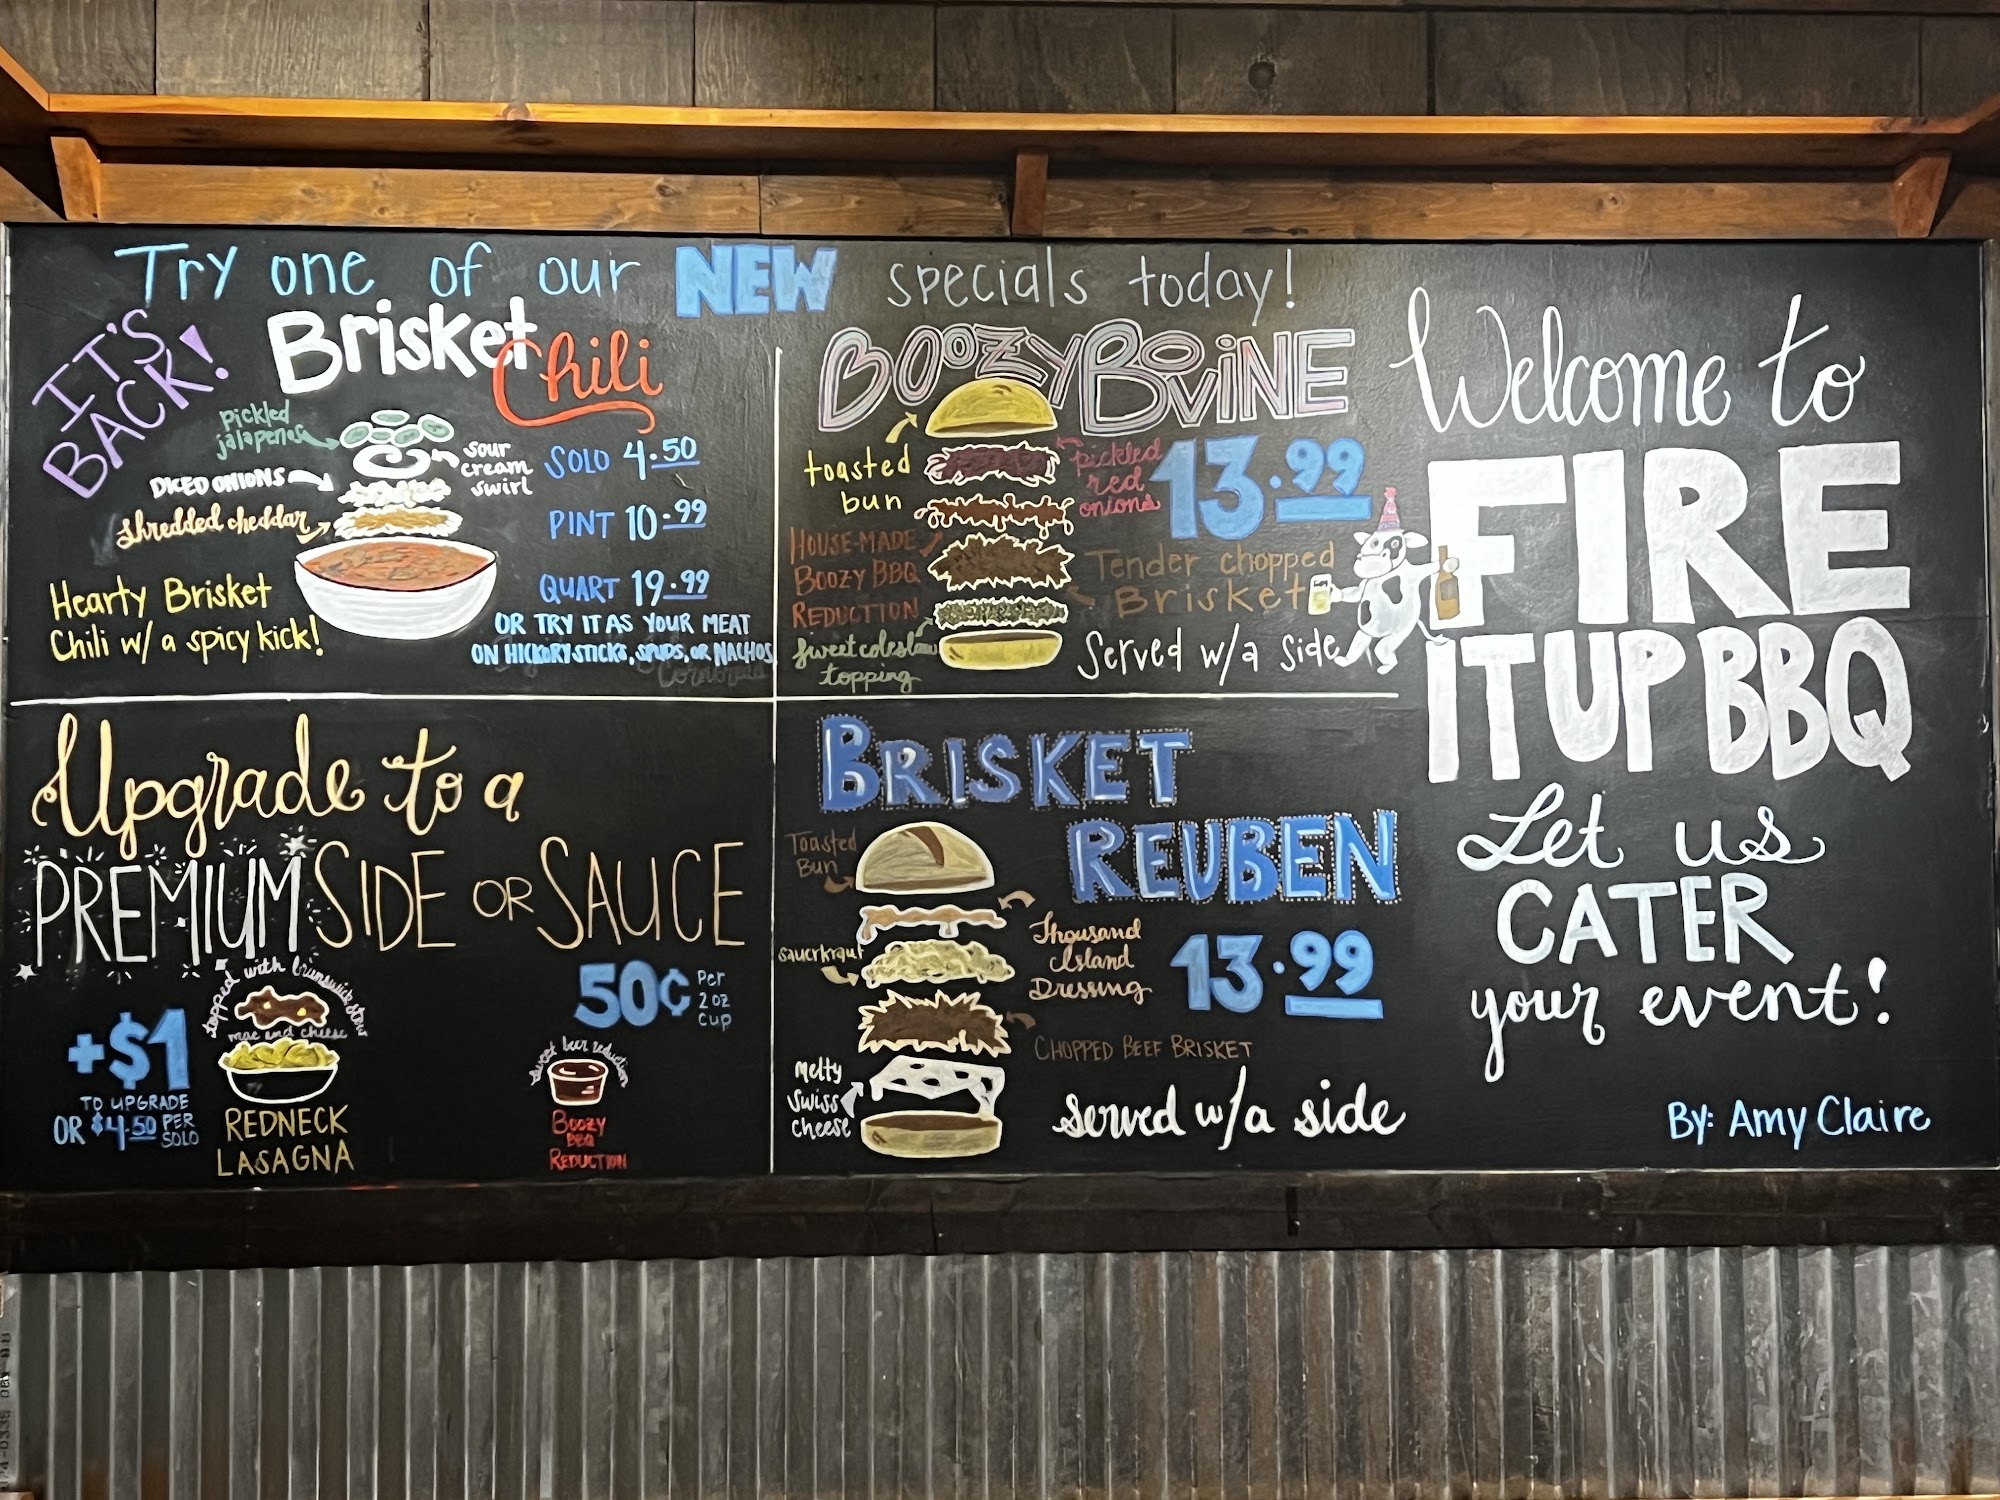 Try one of our NEW specials today!
IT'S
BACK!
Brisket
Chili
pickled
jalapenos
sour
cream
swirl
DICED ONIONS
shredded cheddar
Hearty Brisket
Chili w/ a spicy kick!
SOLO 4.50
PINT 10.99
QUART 19.99
OR TRY IT AS YOUR MEAT
ON HICKORY STICKS, SPUDS, OR NACHOS
BOOZY BOVINE
13.99
toasted
bun
pickled
red
onions
HOUSE-MADE
BOOZY BBQ
REDUCTION
Tender chopped
Brisket
sweet coleslaw
topping
Served w/a side
Upgrade to a
PREMIUM SIDE OR SAUCE
+$1
TO UPGRADE
OR $4.50 PER
SOLO
topped with brunswick stew
mac and cheese
REDNECK
LASAGNA
50¢ Per
2 oz
cup
sweet beer reduction
BOOZY
BBQ
REDUCTION
BRISKET
REUBEN
13.99
Toasted
Bun
Thousand
Island
Dressing
sauerkraut
CHOPPED BEEF BRISKET
melty
swiss
cheese
served w/a side
Welcome to
FIRE
IT UP BBQ
Let us
CATER
your event!
By: Amy Claire